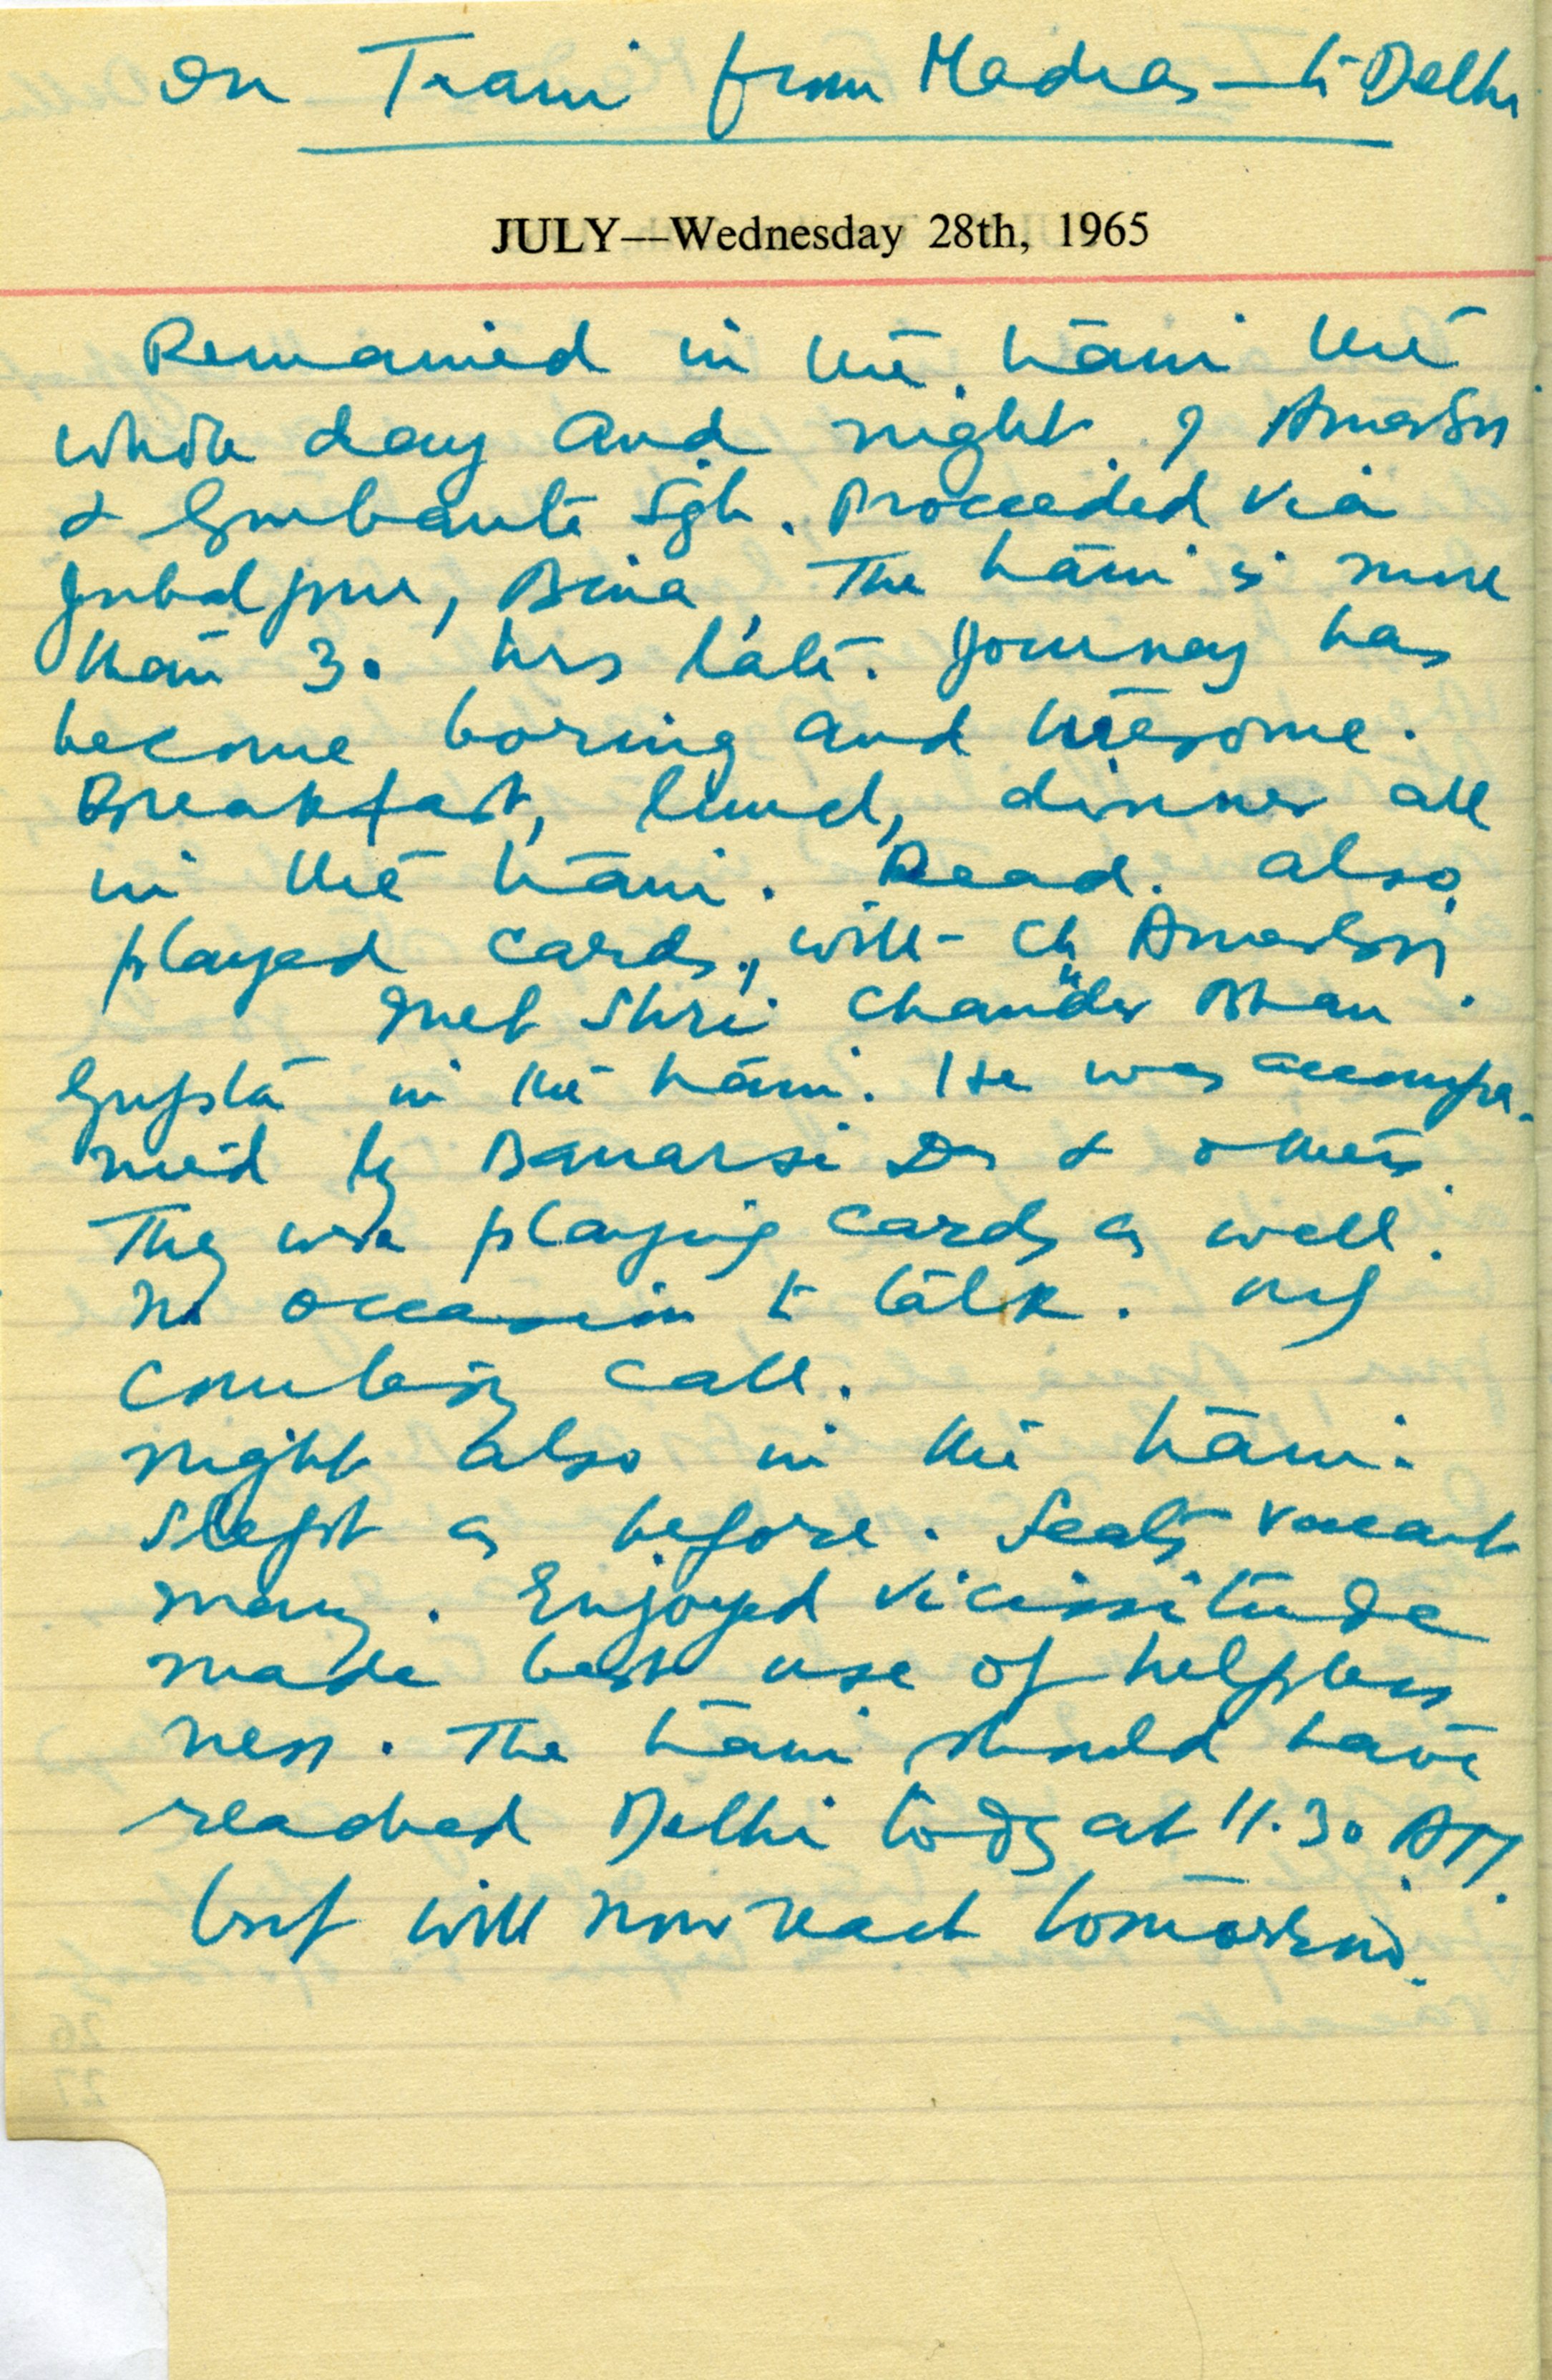 On Train from Madras — to Delhi
JULY—Wednesday 28th, 1965
Remained in the train the
whole day and night. I
& Gurbanta Sgh. Proceeded via
Jubalpur, Bina. The train is more
than 30 hrs late. Journey has
become boring and tiresome.
Breakfast, lunch, dinner all
in the train. Read. also
played cards, with Ch
Met Shri Chander Bhan
Gupta in the train. He was accompa-
nied by Banarsi Das & others.
They were playing cards as well.
No occasion to talk. only
courtesy call.
Night also in the train.
Slept as before. Seats vacant
many. Enjoyed vicissitude
made best use of helpless
ness. The train should have
reached Delhi today at 11.30 AM.
but will now reach tomorrow.